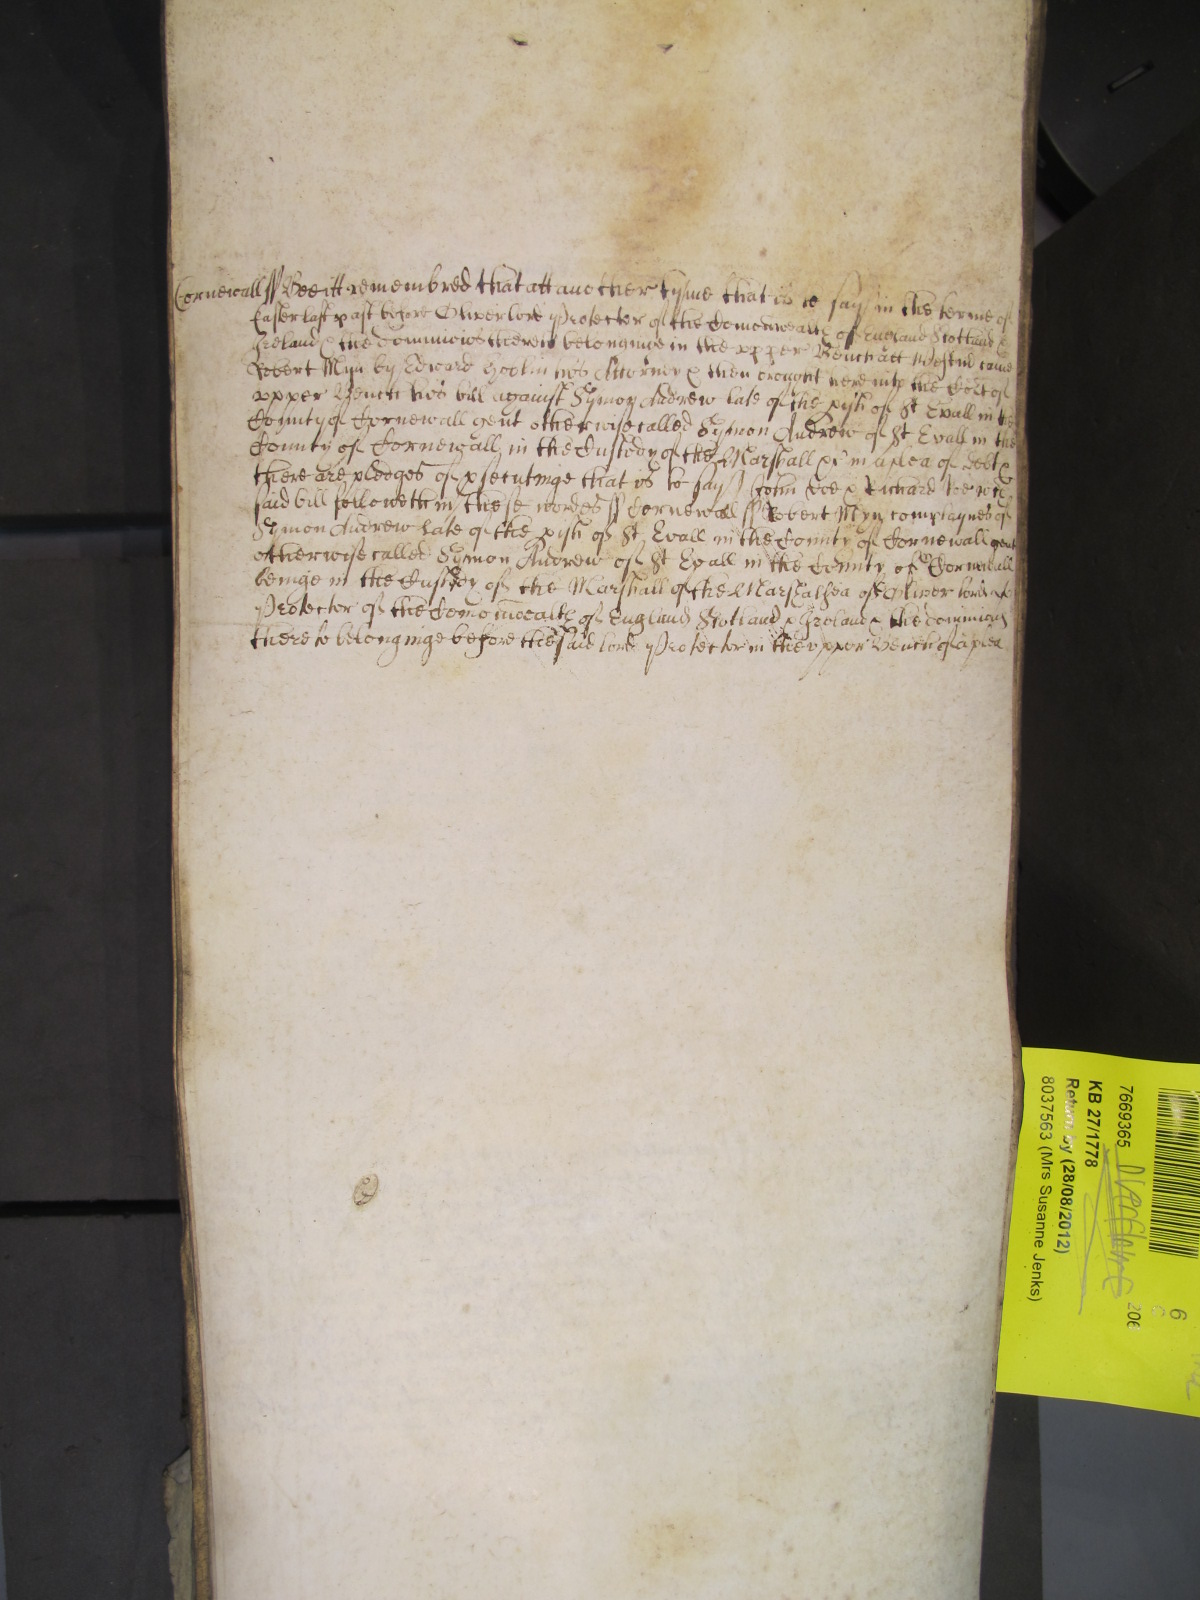 Cornewall ss Bee itt remembred that att another tyme that is to say in the terme of
Easter last past before Oliver lord Protector of the Comonwealth of England Scotland &
Ireland & the dominions thereto belonginge in the upper Bench att Westm came
Robert Myn by Edward Hoblin his Attorney & then brought here into the Cort of
upper Bench his bill against Symon Andrew late of the pish of St Evall in the
County of Cornewall gent otherwise called Symon Andrew of St Evall in the
County of Cornewall in the Custody of the Marshall &c in a plea of debt &
there are pledges of psecutinge that is to say John Doe & Richard Roe wch
said bill followeth in these wordes ss Cornewall ss Robert Myn complaynes of
Symon Andrew late of the pish of St Evall in the County of Cornewall gent
otherwise called Symon Andrew of St Evall in the County of Cornwall
beinge in the Custody of the Marshall of the Marshalsea of Oliver lord
Protector of the Comonwealth of England Scotland & Ireland & the dominions
thereto belonginge before the said lord Protector in the upper Bench of a plea
7669365
KB 27/1778
Return by (28/08/2012)
8037563 (Mrs Susanne Jenks)
206
6